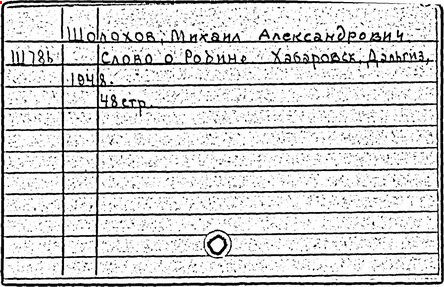 Шолохов, Михаил Александрович.
Ш786 Слово о Родине. Хабаровск, Дальгиз,
1948.
48 стр.